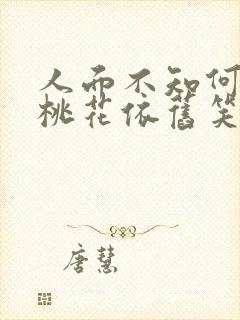 人而不知何
桃花依旧笑
唐慧